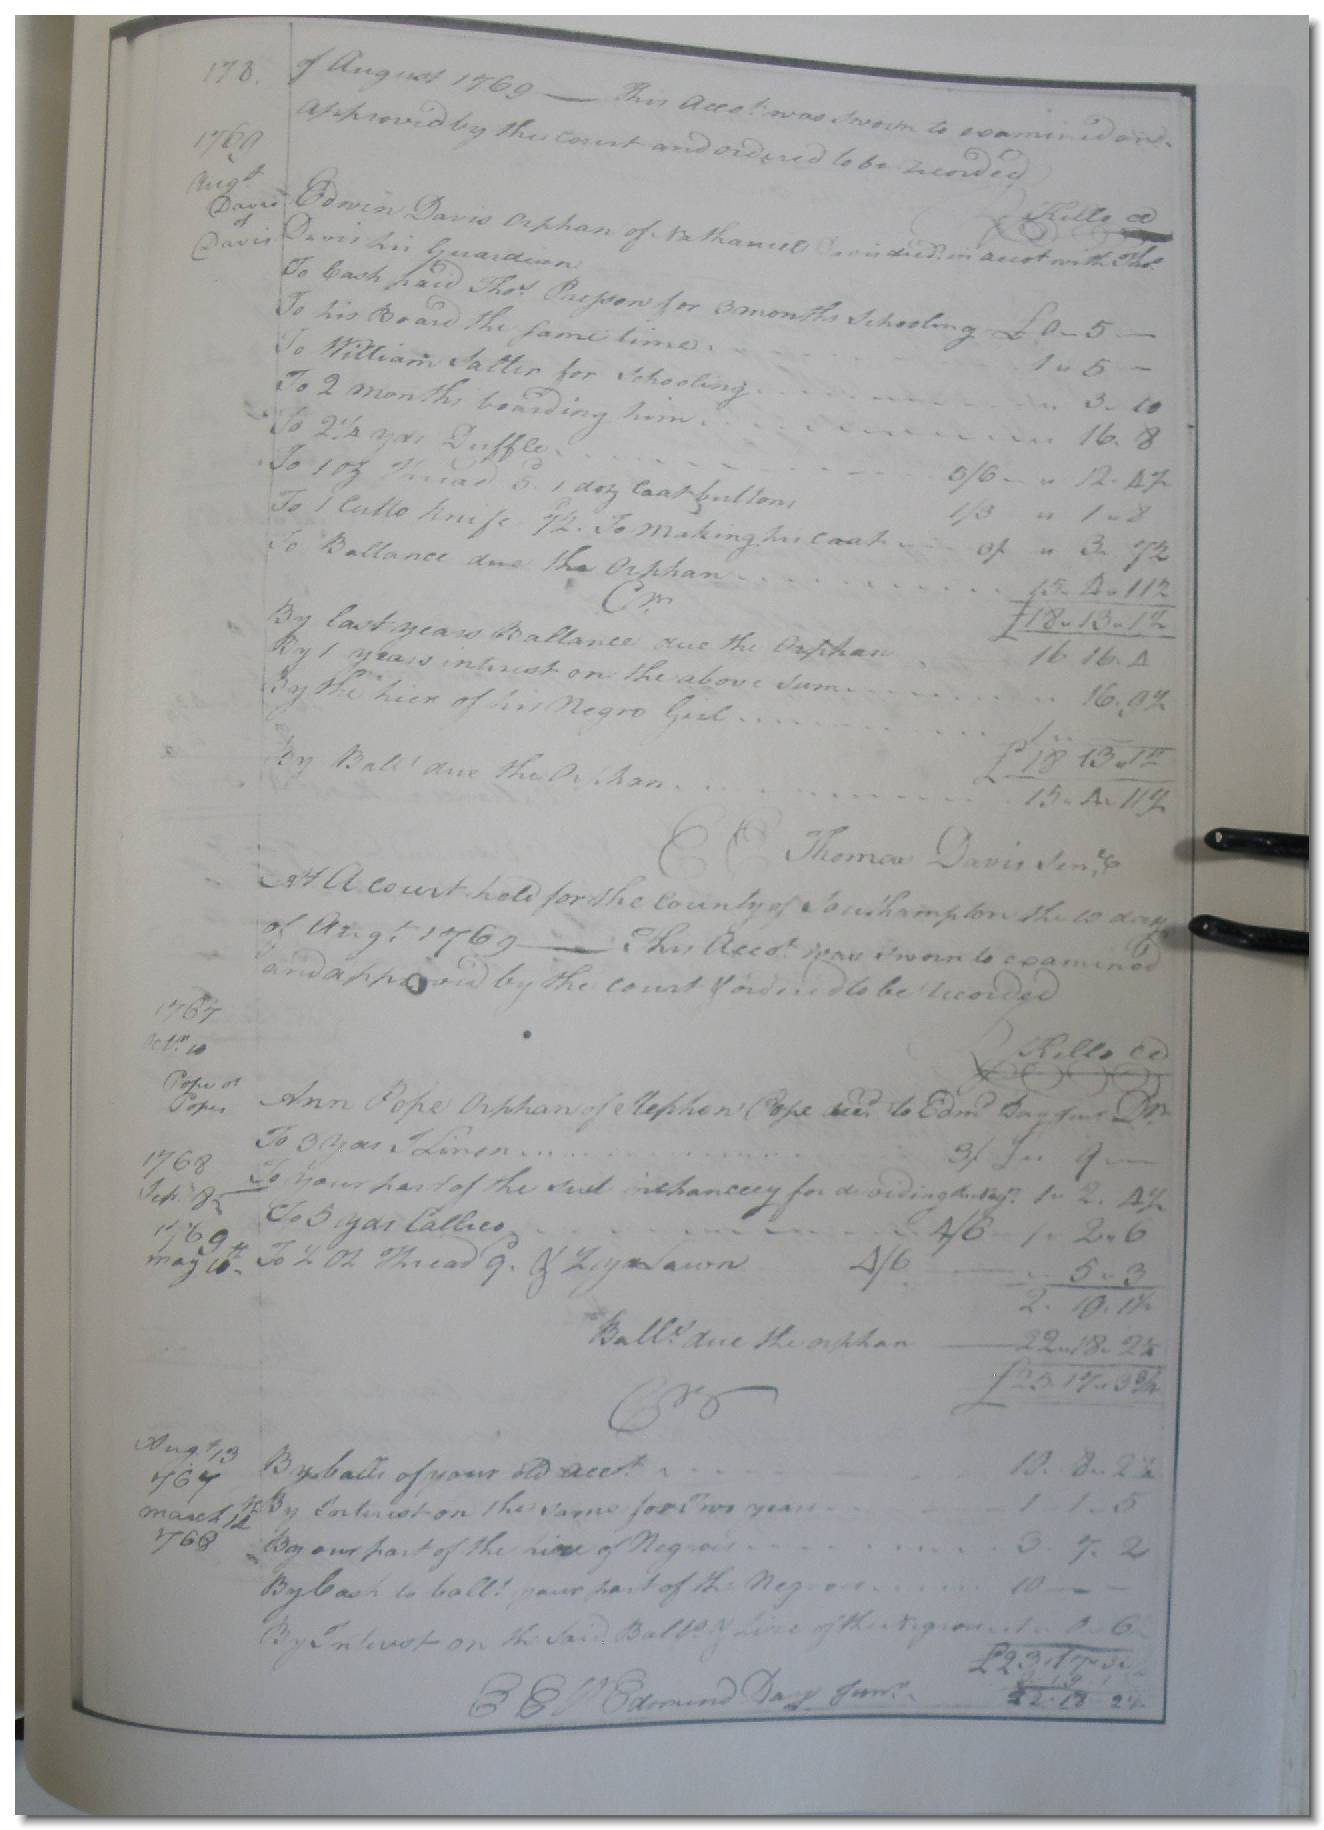 173.
of August 1769 — This Acco.t was sworn to examined and
approved by the court and ordered to be recorded
Kello Cl
1769
Aug.t
Davis
of
Davis
Edwin Davis Orphan of Nathaniel Davis dec.d in accot with Tho.s
Davis his Guardian
To Cash paid Tho.s for 3 months Schooling £0 - 5 -
To his Board the same time 1 " 5 -
To William Salter for Schooling " 3 - 10
To 2 months boarding him " 16 - 8
To 2 1/4 yds Duffle 5/6 - " 12 - 4 1/2
To 1 oz Thread 5. 1 doz Coat buttons 1/3 " 1 - 8
To 1 Cutto Knife 7 1/2. To Making his coat 3/ " 3 - 7 1/2
To Ballance due the Orphan 15 - 4 - 11 1/2
£18 - 13 - 1 1/2
Cr
By last years Ballance due the Orphan 16 16 - 4
By 1 years interest on the above sum 16 - 9 1/2
By the hier of his Negro Girl 1 "
£18 13 - 1 1/2
By Ball.e due the Orphan 15 - 4 - 11 1/2
E E Thomas Davis Sen.r
At A court held for the County of Southampton the 10 day
of Aug.t 1769 — This Acco.t was sworn to examined
and approved by the court & ordered to be recorded
Kello Cl
1767
Oct.r 10
Pope of
Popes
Ann Pope Orphan of Stephen Pope dec.d to Edm.d Day Jun.r Dr
To 3 yds I Linen 3/ £ " 9 —
1768
Sep.r 8
To your part of the suit inchancery for dividing the 1 - 2 - 4 1/2
To 5 yds Callico 4/6 1 - 2 - 6
1769
may 16th
To 1/2 oz Thread 9. & yd Lawn 4/6 5 - 3
2 - 19 - 1 1/2
Ball.e due the orphan 22 - 18 - 2 1/4
£25 - 17 - 3 3/4
Cr
Aug.t 13
1767
By balle of your old accot 10 - 8 - 2 3/4
march 12
1768
By Interest on the same for Two years 1 - 1 - 5
By our part of the hire of Negroes 3 - 7 - 2
By Cash to ball.e your part of the Negroes 10 — -
By Interest on the said Ball.e & hire of the Negroes 1 - 0 - 6
£25 - 17 - 3
2 - 19
22 - 18 - 2 1/4
E E Edmund Day Jun.r